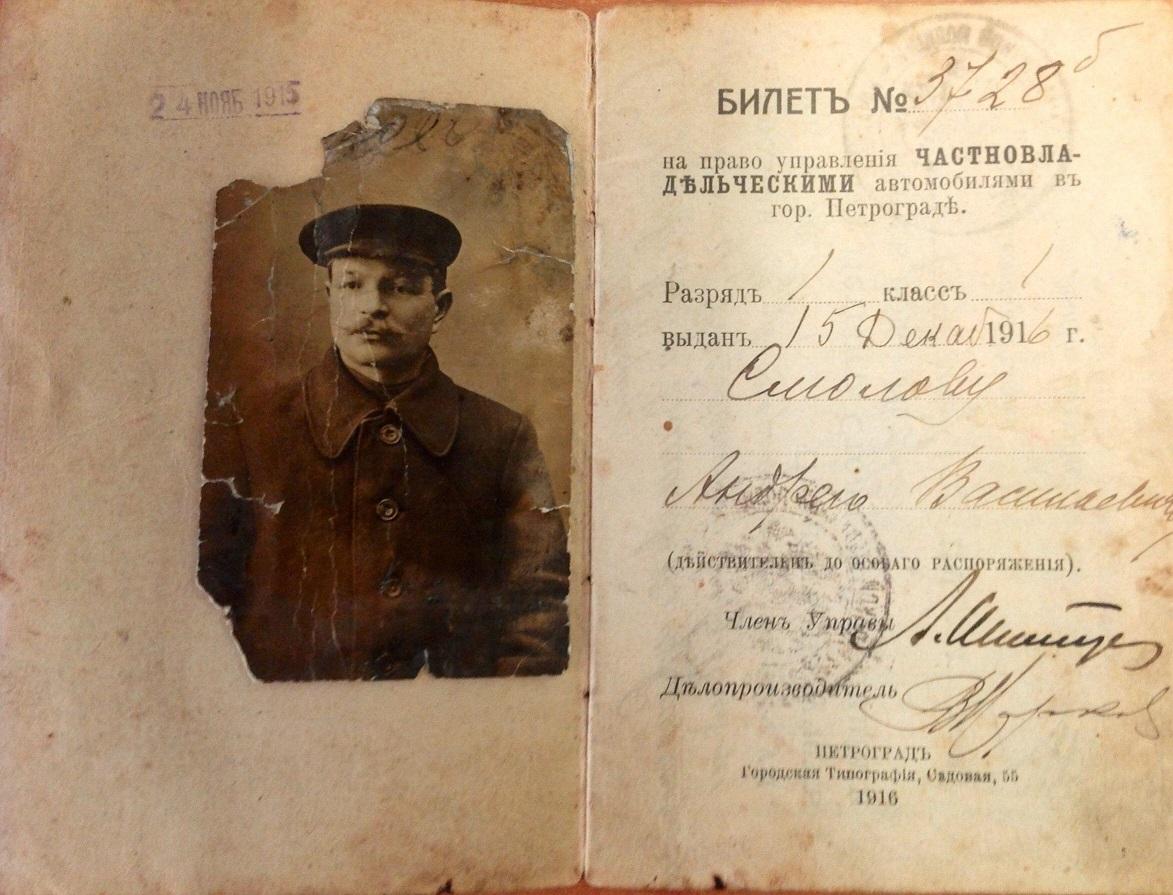 24 НОЯБ 1915
БИЛЕТЪ № 3728 б
на право управленія ЧАСТНОВЛА-
ДѢЛЬЧЕСКИМИ автомобилями въ
гор. Петроградѣ.
Разрядъ 1 классъ 1
выданъ 15 Декаб 1916 г.
Смолову
Андрею Васильевичу
(ДѢЙСТВИТЕЛЕНЪ ДО ОСОБАГО РАСПОРЯЖЕНІЯ).
Членъ Управы
Дѣлопроизводитель
ПЕТРОГРАДЪ
Городская Типографія, Садовая, 55
1916